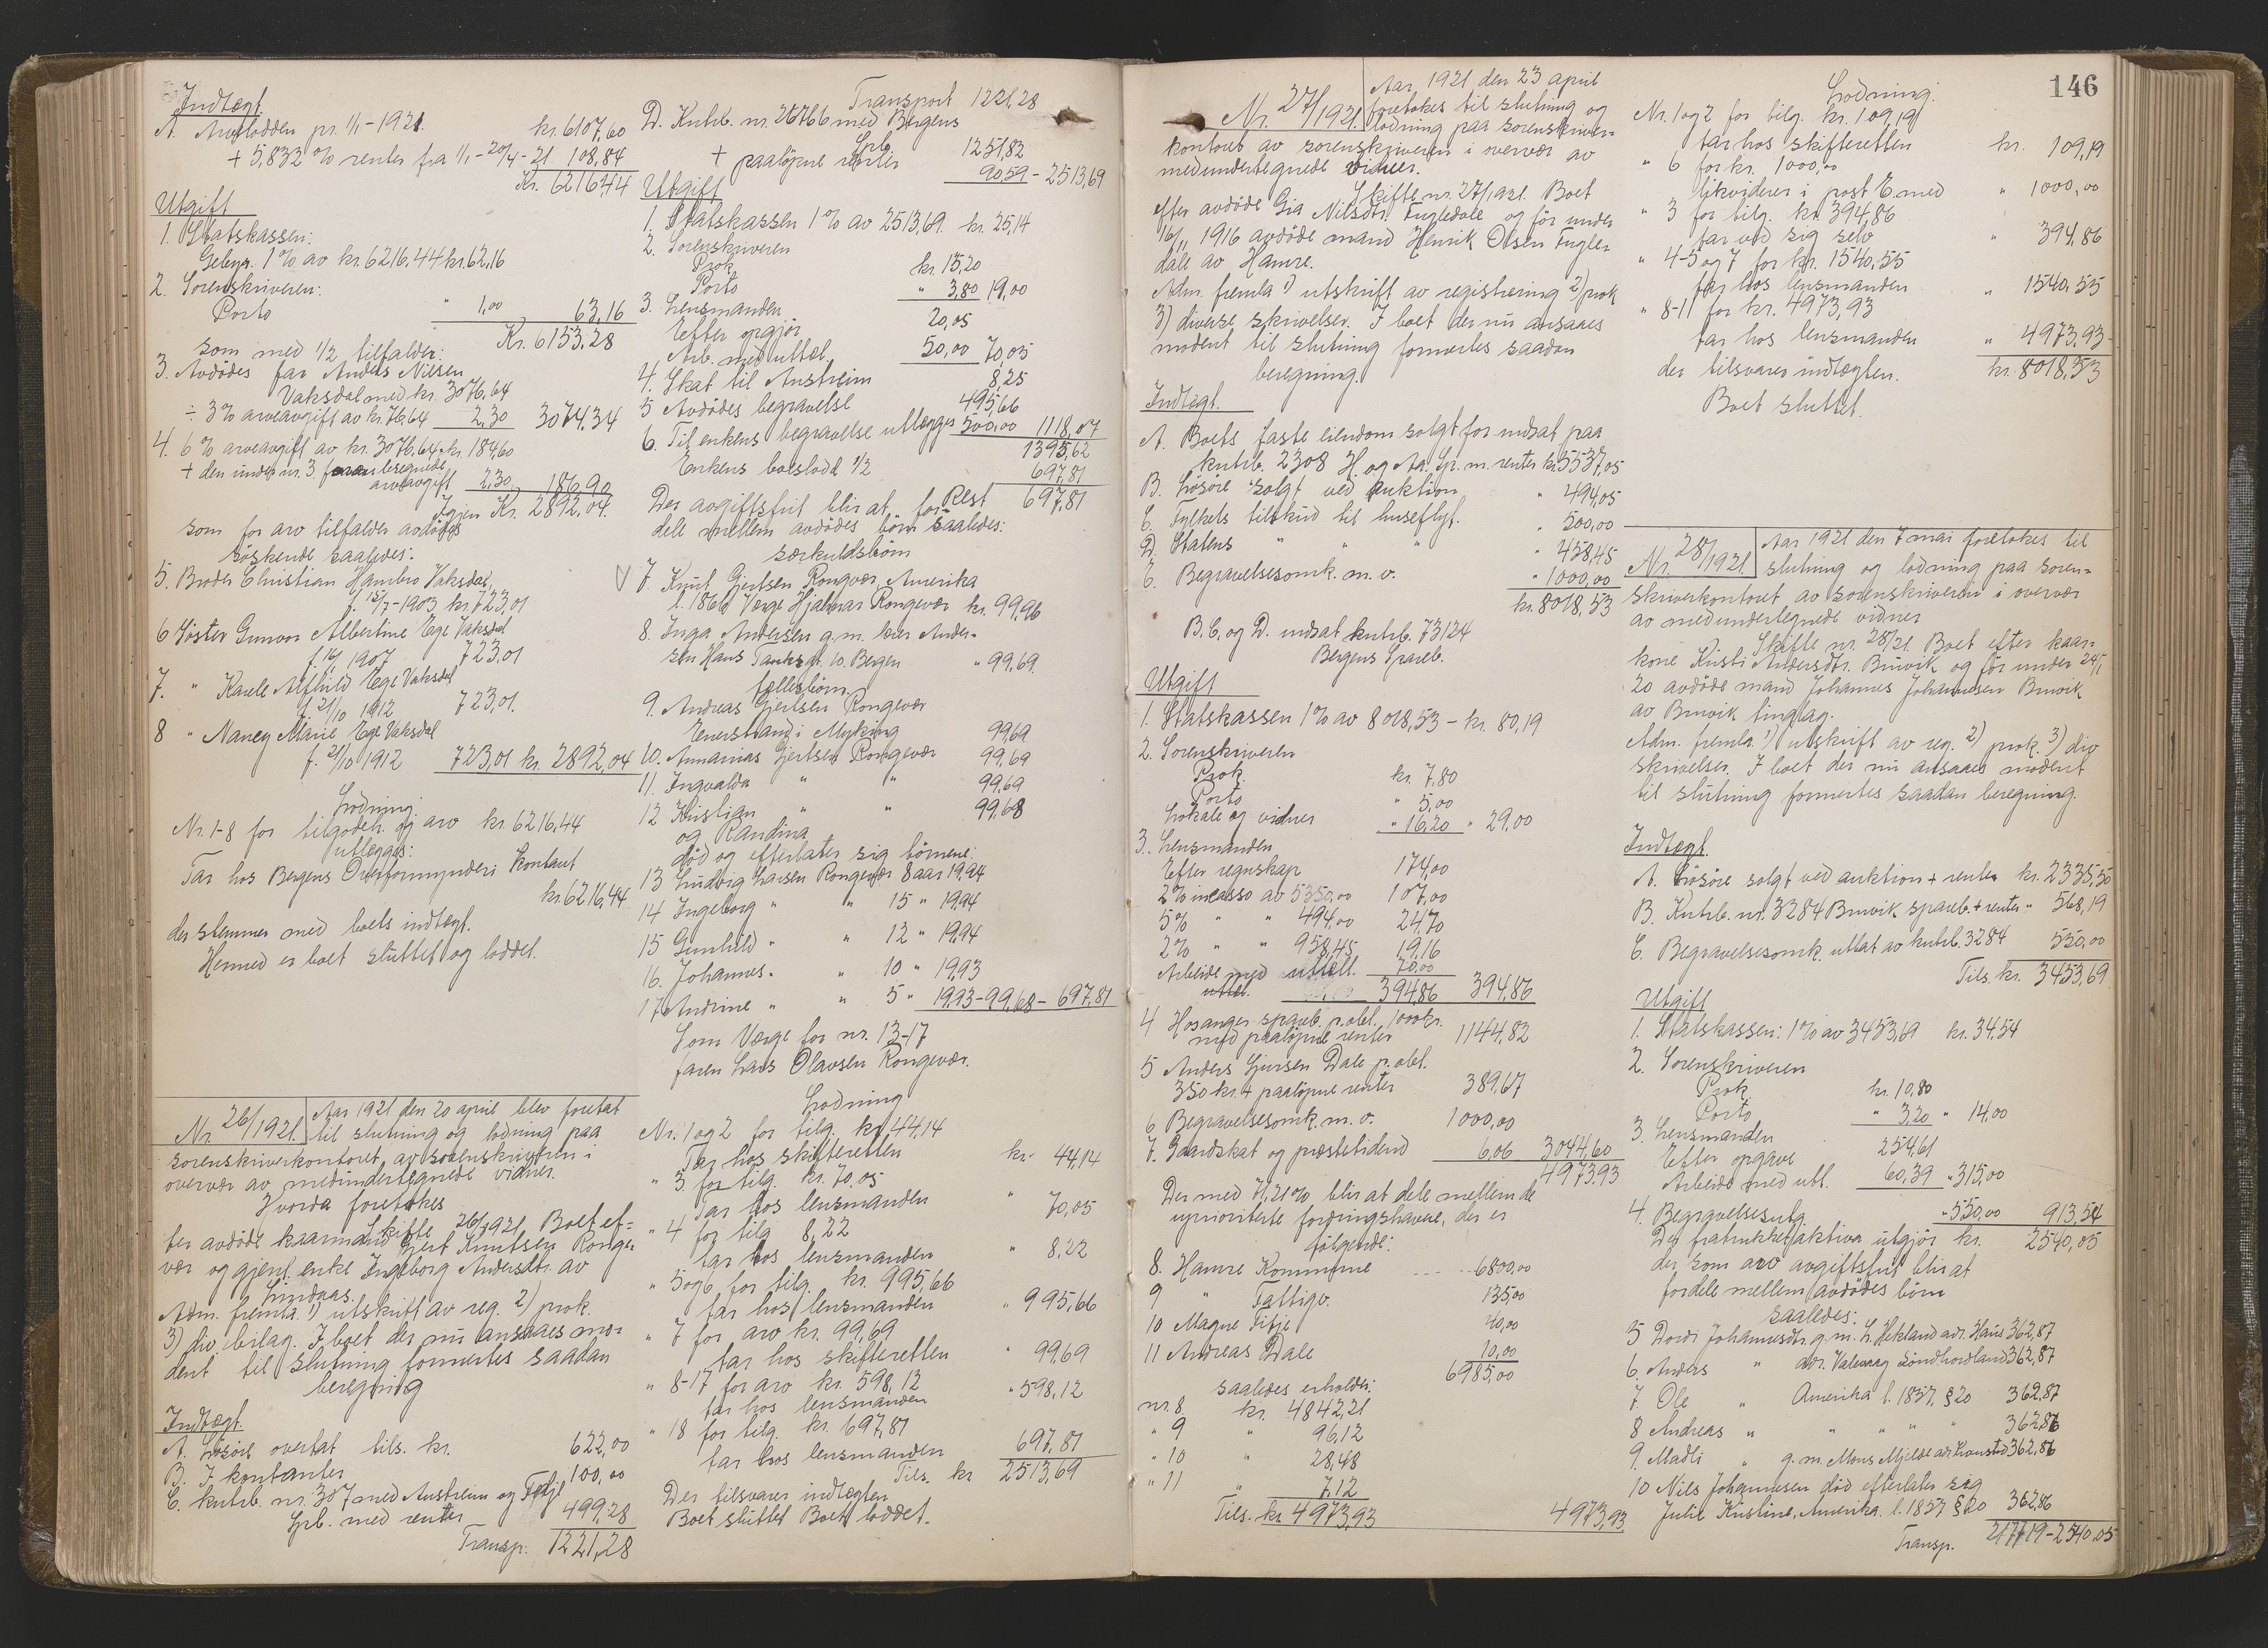 Indtægt.
A. Arvelodden pr. 1/1-1921. kr. 6107,60
+ 5,832 % renter fra 1/1-20/4-21 108,84
Kr. 6216,44
Utgift
1. Statskassen:
Gebyr. 1% av kr. 6216,44 kr. 62,16
2. Sorenskriveren:
Porto " 1,00 63,16
Kr. 6153,28
som med 1/2 tilfalder:
3. Avdödes far Anders Nilsen
Vaksdal med kr. 3076,64
÷ 3% arveavgift av kr. 76,64 2,30 3074,34
4. 6% arveavgift av kr. 3076,64 kr. 184,60
+ den under nr. 3 foran beregnede
arveavgift 2,30 186,90
Igjen Kr. 2892,04.
som for arv tilfalder avdødes
söskende saaledes:
5. Broder Christian Hambro Vaksdal,
f. 15/7-1903 kr. 723,01
6 Söster Gunvor Albertine Ege Vaksdal
1907 723,01
7. " Karele Alfhild Ege Vaksdal
f. 21/10 1912 723,01.
8 " Nancy Marie Ege Vaksdal
f. 21/10 1912 723,01 kr. 2892,04
Lodning:
Nr. 1-8 for tilgodeh. og arv kr. 6216,44
utlægges:
Tar hos Bergens Overformynderi kontant
kr. 6216,44
der stemmer med boets indtægt.
Hermed er boet sluttet og loddet.
Nr. 26/1921. Aar 1921 den 20 april blev foretat
til slutning og lodning paa
sorenskriverkontoret av sorenskriveren i
overvær av medundertegnede vidner.
Hvorda foretokes
Skifte 26/1921. Boet ef-
ter avdöde kaarmand Gjert Knutsen Ronge-
vær og gjenl. enke Ingeborg Andersdtr. av
Lindaas.
Adm. fremla 1) utskrift av reg. 2) prok.
3) div. bilag. I boet der nu ansaaes mo-
dent til slutning formertes saadan
beregning
Indtægt.
A. Lösöre overtat tils. kr. 622,00
B. I kontanter 100,00
C. kntrb. nr. 307 med Austrem og Fedje
Spb. med renter 499,28
Transp. 1221,28
Transport 1221,28
D. Kntrb. nr. 26766 med Bergens
Spb. 1251,82
+ paalöpne renter 90,59 - 2513,69
Utgift
1. Statskassen 1% av 2513,69 kr. 25,14
2. Sorenskriveren
Prok kr. 15,20
Porto " 3,80 19,00
3. Lensmanden
Efter opgjör 20,05
Arb. med uttæl. 50,00 70,05
4. Skat til Austreim 8,25
5 Avdödes begravelse 495,66
6. Til enkens begravelse utlægges 500,00 1118,07
1395,62
Enkens boeslodd 1/2 697,81
Rest 697,81
Der avgiftsfrit blir at for-
dele mellem avdödes börn saaledes:
særkuldsbörn
V 7. Knut Gjertsen Rongvær, Amerika
l. 1861 Verge Hjalmar Rongevær kr. 99,96
8. Inga Andersen g.m. kier Ander-
sen Hans Tanksgt. 10. Bergen " 99,69.
fællesbörn.
9. Andreas Gjertsen Rongevær
Enerstvang i Myking 99,69
10. Annanias Gjertsen Rongevær 99,69
11. Ingvalda " " 99,69
12 Kristian " " 99,68
og Randina
död og efterlater sig börnene:
13 Ludvig Larsen Rongevær 8 aar 19,94
14 Ingeborg " " 15 " 19,94
15 Gunhild " " 12 " 19,94
16. Johannes. " 10 " 19,93
17 Andrine " " 5 " 19,93 - 99,68 - 697,81
Som Verge for nr. 13-17
faren Lars Olavsen Rongevær.
Lodning
Nr. 1 og 2 for tilg. kr 44,14
Tar hos skifteretten kr. 44,14
" 3 for tilg. kr. 70,05
Tar hos lensmanden " 70,05
" 4 for tilg 8,22
tar hos lensmanden " 8,22
" 5 og 6 for tilg. kr. 995,66
tar hos lensmanden " 995,66
" 7 for arv kr. 99,69
tar hos skifteretten " 99,69
" 8-17 for arv kr. 598,12
tar hos lensmanden " 598,12
" 18 for tilg. kr. 697,81
tar hos lensmanden 697,81
Tils. kr 2513,69
Der tilsvarer indtægten
Boet sluttet Boet loddet.
146
Nr. 27/1921. Aar 1921 den 23 april
foretokes til slutning og
lodning paa sorenskriver-
kontoret av sorenskriveren i overvær av
medundertegnede vidner.
Skifte nr. 27/1921. Boet
efter avdöde Gia Nilsdtr. Fugledale og för under
16/11 1916 avdöde mand Henrik Olsen Fugle-
dale av Hamre.
Adm. fremla 1) utskrift av registrering 2) prok
3) diverse skrivelser. I boet der nu ansaaes
modent til slutning formertes saadan
beregning.
Indtægt.
A. Boets faste eiendom solgt for indsat paa
kntrb. 2308 H. og Aa. Sp. m. renter kr. 5537,05
B. Lösöre solgt ved auktion " 494,05
C. Fylkets tilskud til huseflyt. " 500,00
D. Statens " " " " 458,45
E. Begravelsesomk. m. v. " 1000,00
kr. 8018,53
B. C. og D. indsat kntrb. 73124
Bergens Spareb.
Utgift
1. Statskassen 1% av 8018,53 - kr. 80,19
2. Sorenskriveren
Prok. kr. 7,80
Porto " 5,00
Lokale og vidner " 16,20 " 29,00
3. Lensmanden
Efter regnskap 174,00
2% incasso av 5350,00 107,00
5% " " 494,00 24,70
2% " " 958,45 19,16
Arbeide med uttæll. 70,00
uttæl. 394,86 394,86
4 Hosanger spareb. p. obl. 1000 kr.
med paalöpne renter 1144,82
5 Anders Gjursen Dale p. obl.
350 kr. + paalöpne renter 389,67
6 Begravelsesomk. m. v. 1000,00
7. Gaardskat og præstetiend 6,06 3044,60
4973,93
Der med 71,21% blir at dele mellem de
uprioriterte fordringshavere, der er
følgende:
8. Hamre Kommune 6800,00
9 " Fattigv. 135,00
10 Magne Titje 40,00
11 Andreas Dale 10,00
6985,00
saaledes erholder:
nr. 8 kr. 4842,21
" 9 " 96,12
" 10 " 28,48
" 11 " 7,12
Tils. kr 4973,93 4973,93
Lodning.
Nr. 1 og 2 for tilg. kr. 109,19
tar hos skifteretten kr. 109,19
" 6 for kr. 1000,00
likviderer i post E. med " 1000,00
" 3 for tilg. kr. 394,86
tar ved sig selv " 394,86
" 4-5 og 7 for kr. 1540,55
tar hos lensmanden " 1540,55
" 8-11 for kr. 4973,93
tar hos lensmanden " 4973,93
der tilsvarer indtægten. kr. 8018,53
Boet sluttet.
Nr. 28/1921 Aar 1921 den 7 mai foretokes til
slutning og lodning paa soren-
skriverkontoret av sorenskriveren i overvær
av medundertegnede vidner
Skifte nr. 28/21. Boet efter kaar-
kone Kristi Andersdtr. Bruvik og för under 24/1
20 avdöde mand Johannes Johannesen Bruvik
av Bruvik tinglag.
Adm. fremla 1) utskrift av reg. 2) prok. 3) div
skrivelser. I boet der nu ansaaes modent
til slutning formertes saadan beregning.
Indtægt.
A. Lösöre solgt ved auktion + renter kr. 2335,50
B. Kntrb. nr. 3284 Bruvik spareb. + renter " 568,19
C. Begravelsesomk. uttat av kntrb. 3284 550,00
Tils. kr. 3453,69
Utgift
1. Statskassen: 1% av 3453,69 kr. 34,54
2. Sorenskriveren
Prok. kr. 10,80
Porto " 3,20 " 14,00
3. Lensmanden
Efter opgave 254,61
Arbeide med utl. 60,39 " 315,00
4. Begravelsesutg. " 550,00 913,54
Der fratrukket aktiva utgjör kr. 2540,05
der som arv avgiftsfrit blir at
fordele mellem avdödes börn
saaledes:
5 Dordi Johannesdtr. g. m. L. Hekland adr. Haus 362,87
6. Anders " adr. Valevaag Söndhordland 362,87
7. Ole " Amerika l. 1857, § 20 362,87
8 Andreas " " " " 362,86
9. Madli " g. m. Mons Mjelde adr. 362,86
10 Nils Johannesen död efterlater sig
Julie Kristine, Amerika. l. 1857 § 20 362,86
Transp. 2177,19 - 2540,05